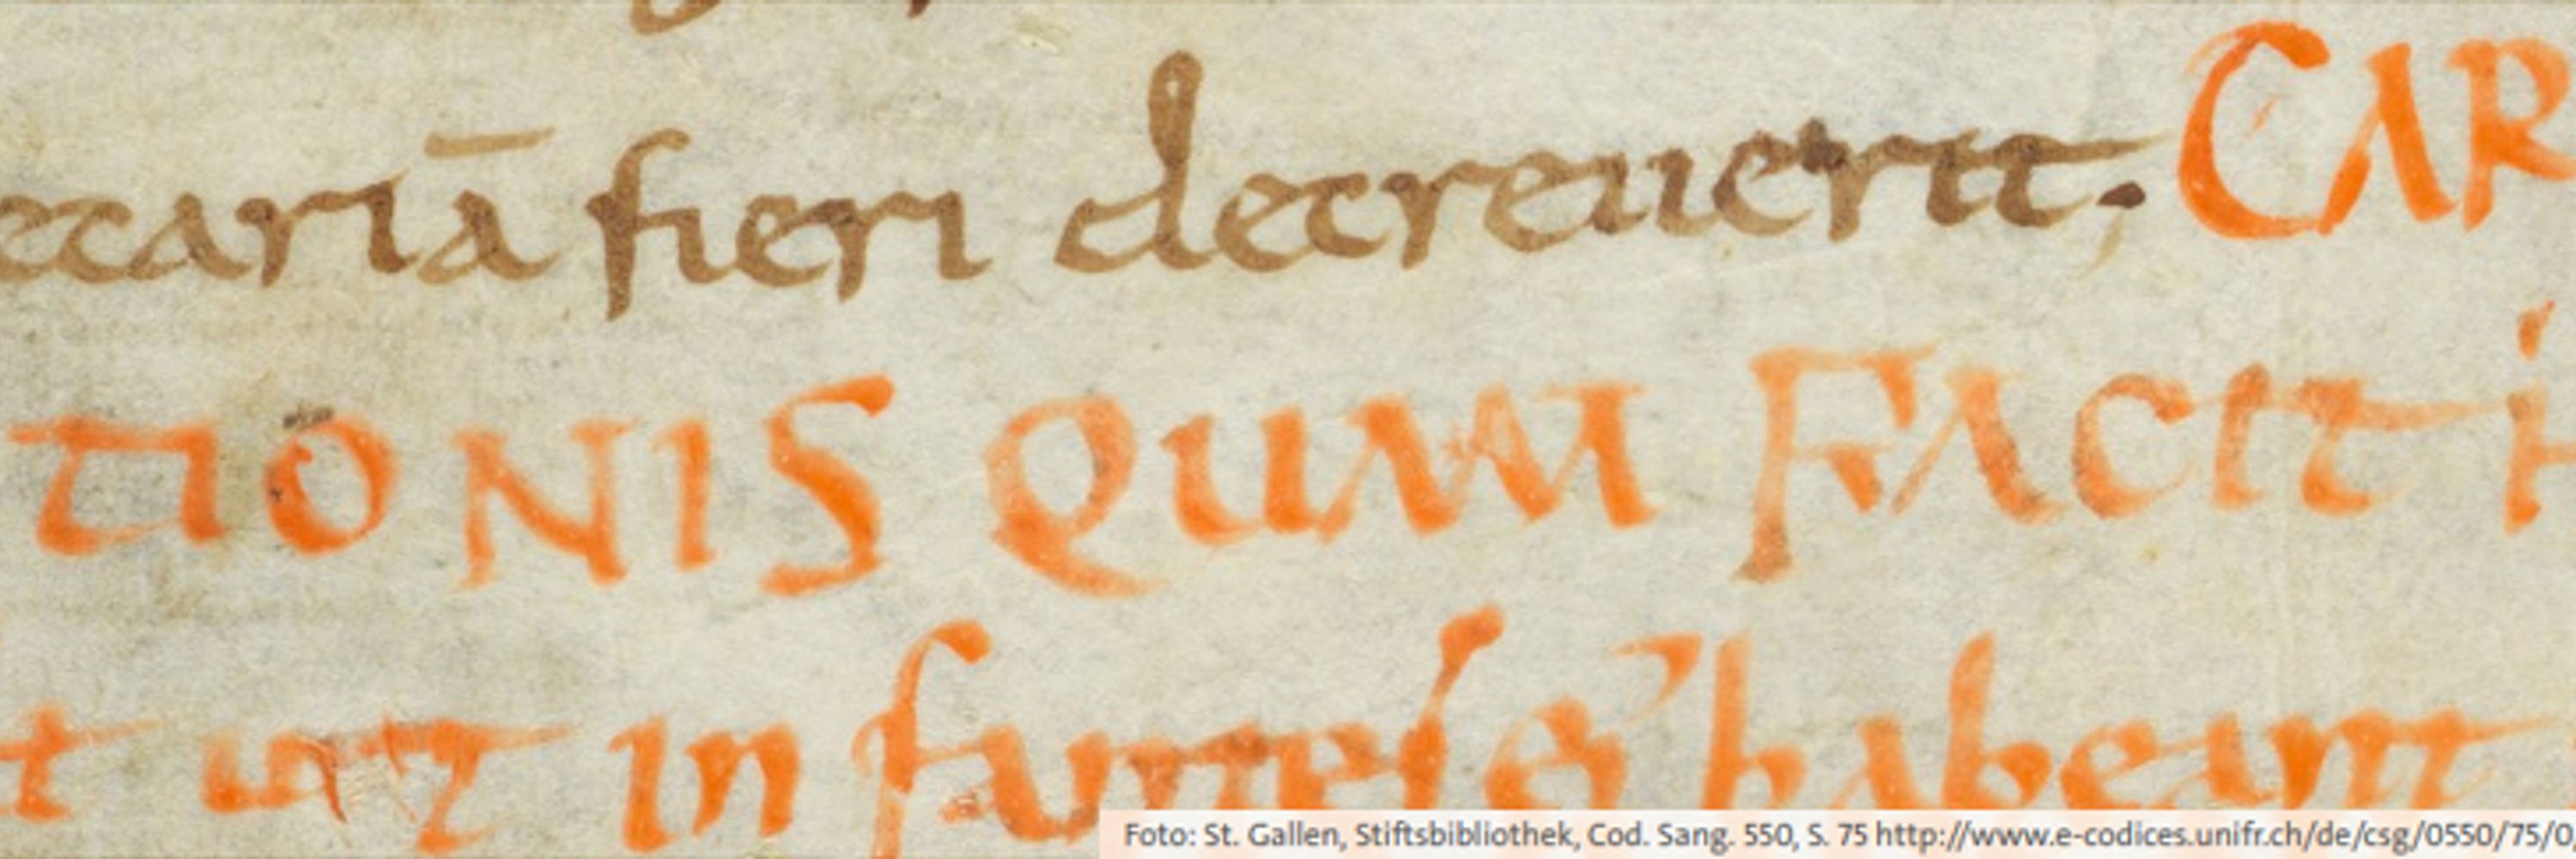 ecariā fieri decreuerit; CAR
TIONIS QUAM FACIT
t ut in fantes ei' habeant
Foto: St. Gallen, Stiftsbibliothek, Cod. Sang. 550, S. 75 http://www.e-codices.unifr.ch/de/csg/0550/75/0